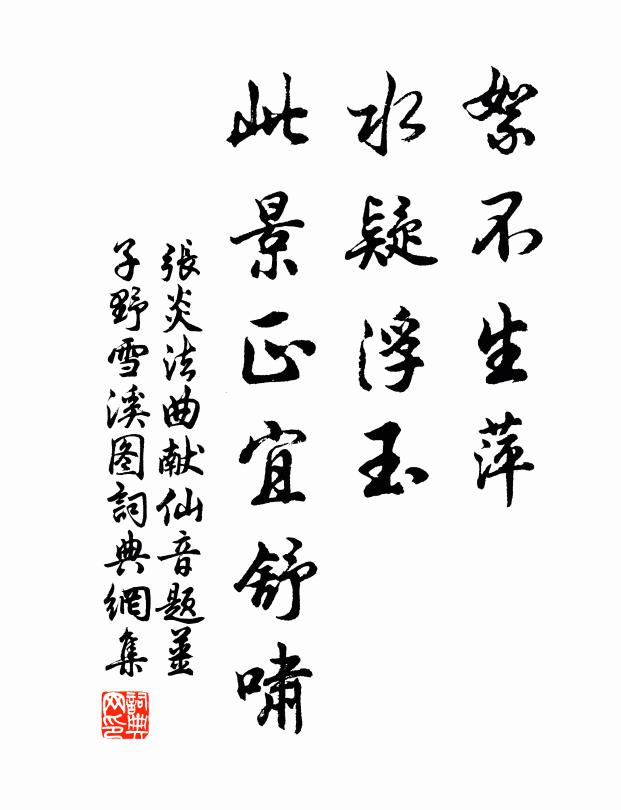 絮不生萍
水疑浮玉
此景正宜舒嘯
張炎法曲献仙音题姜
子野雪溪图詞典網集
詞典
网印